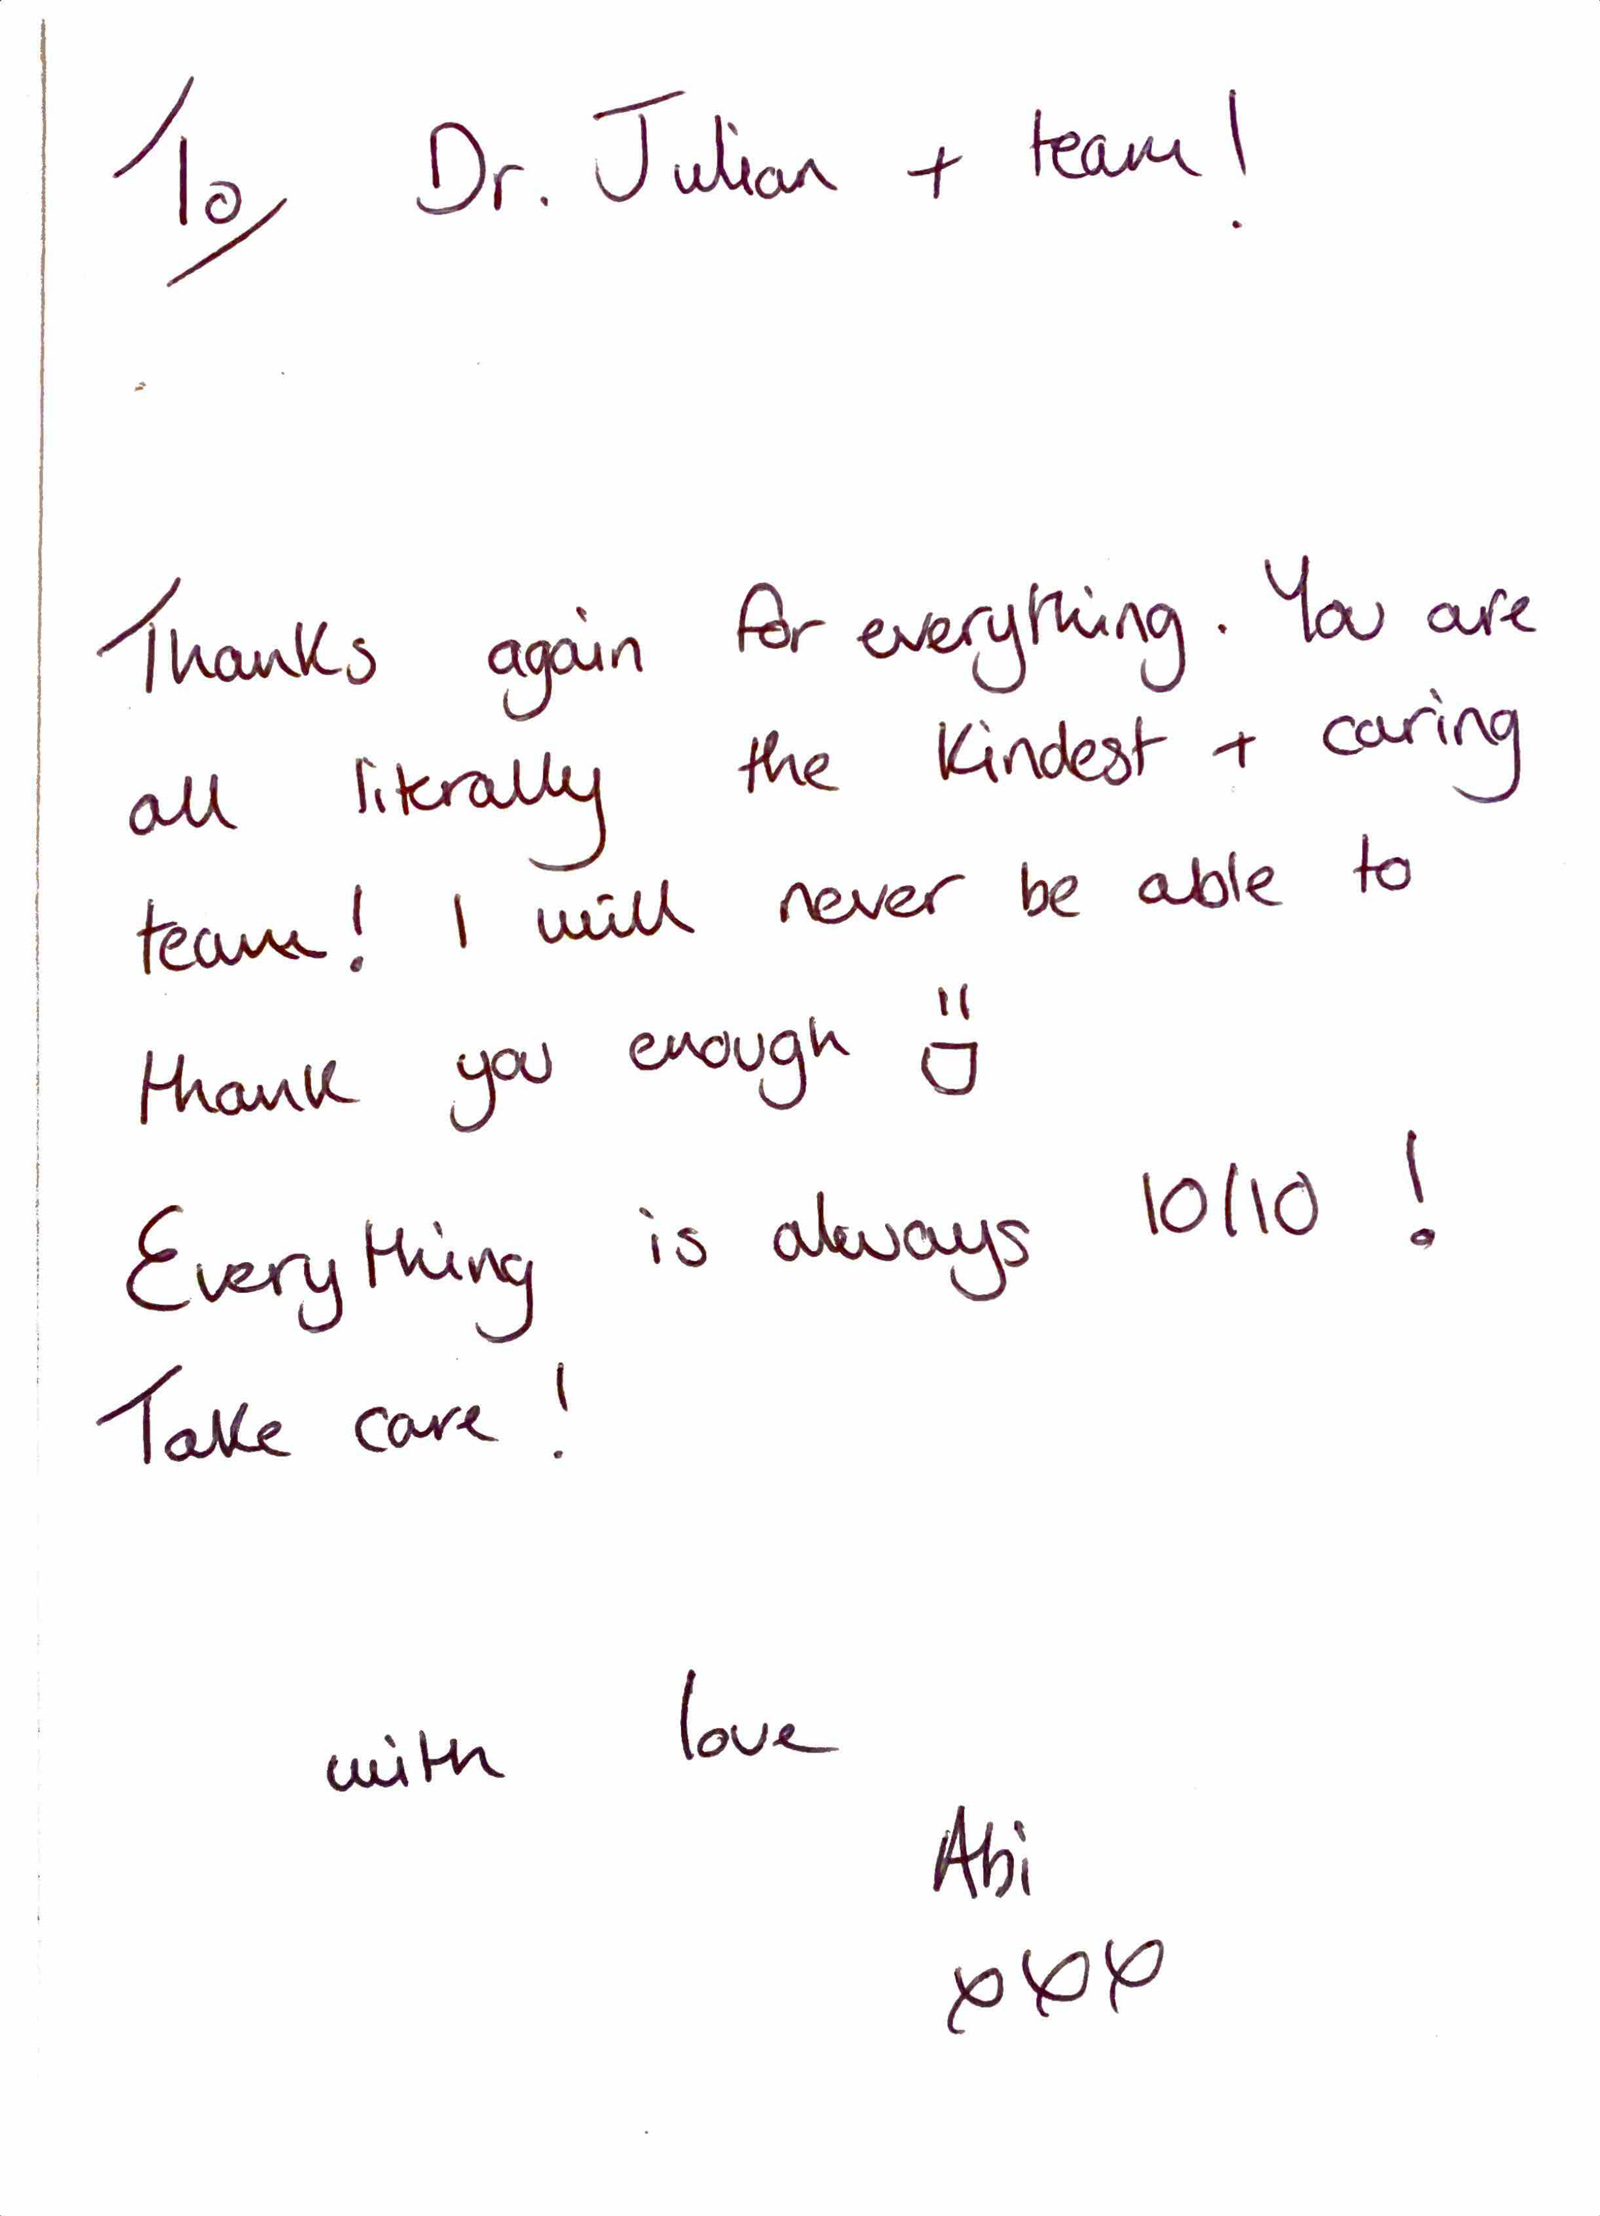 To Dr. Julian + team!
Thanks again for everything. You are
all literally the kindest + caring
team! I will never be able to
thank you enough =D
Everything is always 10/10 !
Take care !
with love
Abi
xxx